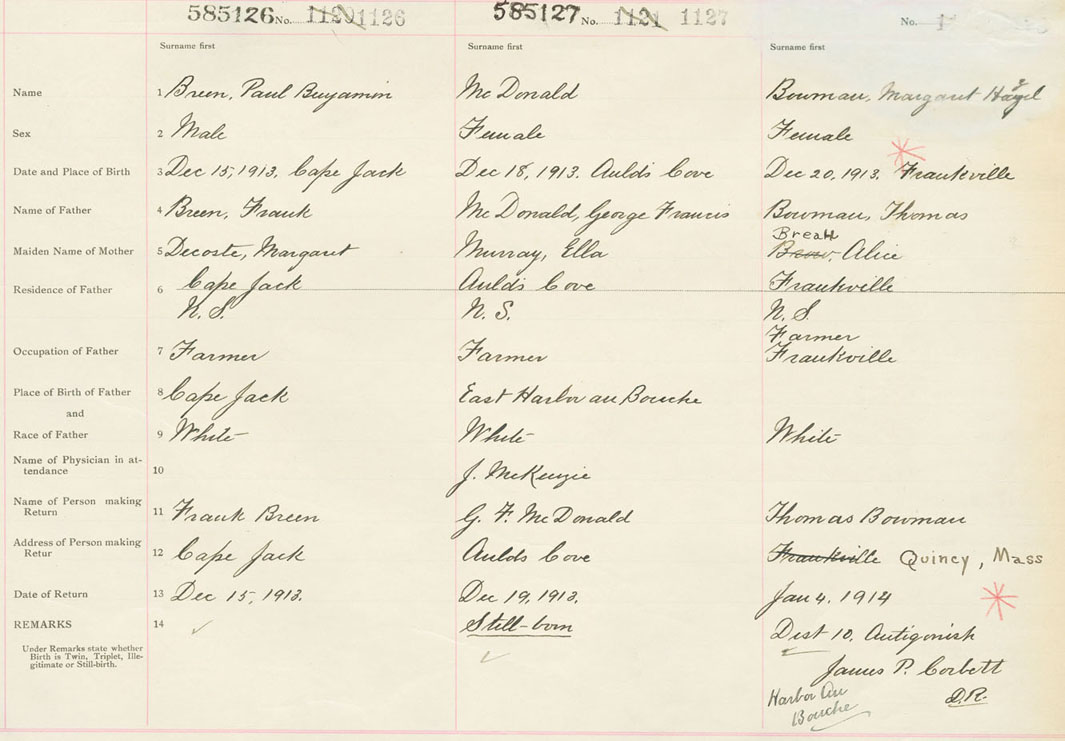 585126 No. 1120 1126 585127 No. 1121 1127 No. 1
Surname first Surname first Surname first
Name 1 Breen, Paul Benjamin McDonald Bowman, Margaret Hazel
Sex 2 Male Female Female
Date and Place of Birth 3 Dec 15, 1913, Cape Jack Dec 18, 1913. Aulds Cove Dec 20, 1913. Frankville
Name of Father 4 Breen, Frank McDonald, George Francis Bowman, Thomas
Breau
Maiden Name of Mother 5 Decoste, Margaret Murray, Ella Alice
Residence of Father 6 Cape Jack Aulds Cove Frankville
N.S. N.S. N.S.
Farmer
Occupation of Father 7 Farmer Farmer Frankville
Place of Birth of Father 8 Cape Jack East Harbor au Bouche
and
Race of Father 9 White White White
Name of Physician in at-
tendance 10 J. McKenzie
Name of Person making
Return 11 Frank Breen G. F. McDonald Thomas Bowman
Address of Person making
Retur 12 Cape Jack Aulds Cove Frankville Quincy, Mass
Date of Return 13 Dec 15, 1913. Dec 19, 1913. Jan 4, 1914
REMARKS 14 Still-born Dist 10, Antigonish
Under Remarks state whether
Birth is Twin, Triplet, Ille-
gitimate or Still-birth.
James P. Corbett
D.R.
Harbor Au
Bouche